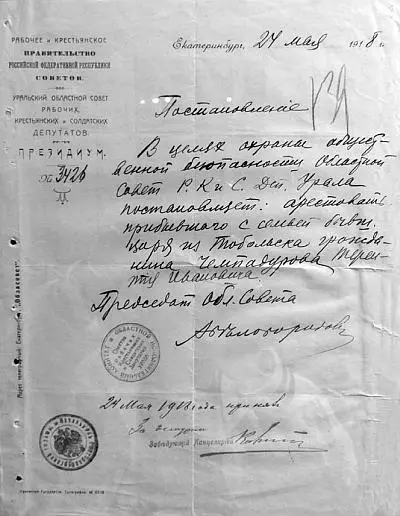 РАБОЧЕЕ И КРЕСТЬЯНСКОЕ
ПРАВИТЕЛЬСТВО
РОССИЙСКОЙ ФЕДЕРАТИВНОЙ РЕСПУБЛИКИ
СОВЕТОВ.
УРАЛЬСКИЙ ОБЛАСТНОЙ СОВЕТ
РАБОЧИХ,
КРЕСТЬЯНСКИХ и СОЛДАТСКИХ
ДЕПУТАТОВ.
ПРЕЗИДИУМ.
№ 3426
Екатеринбург, 24 мая 1918 г.
Постановление
В целях охраны общест-
венной безопасности Областной
Совет Р. К и С. Деп. Урала
постановляет: арестовать
прибывшего с семьей бывш.
царя из Тобольска гражда-
нина Чемадурова Терен-
тия Ивановича.
Председат Обл. Совета
А Белобородов
24 Мая 1918 года принят
За
Заведующий Канцелярией
Адрес телеграфный: Екатеринбург, „Областсовет“